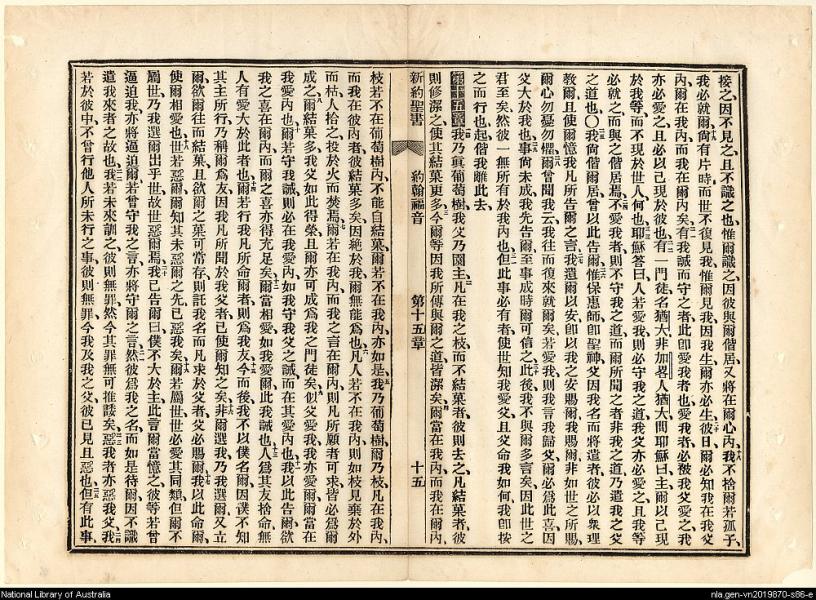 接之因不見之且不識之也惟爾識之因彼與爾偕居又將在爾心內我不捨爾若孤子
我必就爾尙有片時而世不復見我惟爾見我因我生爾亦必生彼日爾必知我在我父
內爾在我內而我在爾內矣有我誡而守之者此卽愛我者也愛我者必被我父愛之我
亦必愛之且必以己現於彼也有一門徒名猶大非加畧人猶大問耶穌曰主爾以己現
於我等而不現於世人何也耶穌答曰人若愛我則必守我之道我父亦必愛之且我等
必就之而與之偕居焉不愛我者則不守我之道而爾所聞之者非我之道乃遣我之父
之道也〇我尙偕爾居曾以此告爾惟保惠師卽聖神父因我名而將遣者彼必以衆理
教爾且使爾憶我凡所告爾之言我遺爾以安卽以我之安賜爾我賜爾非如世之所賜
爾心勿憂勿懼爾曾聞我云我往而復來就爾矣若愛我則我言我歸父爾必爲此喜因
父大於我也事尙未成我先告爾至事成時爾可信之此後我不與爾多言矣因此世之
君至矣然彼一無所有於我內也但此事必有者使世知我愛父且父命我如何我卽按
之而行也起偕我離此去
第十五章我乃眞葡萄樹我父乃園主凡在我之枝而不結菓者彼則去之凡結菓者彼
則修潔之使其結菓更多今爾等因我所傳與爾之道皆潔矣爾當在我內而我在爾內
新約聖書 約翰福音 第十五章 十五
枝若不在葡萄樹內不能自結菓爾若不在我內亦如是我乃葡萄樹爾乃枝凡在我內
而我在彼內者彼結菓多矣因絕於我爾無能爲也凡人若不在我內則如枝見棄於外
而枯人拾之投於火而焚焉爾若在我內而我之言在爾內則凡所願者可求皆必爲爾
成之爾結菓多我父如此得榮且爾亦可成爲我之門徒矣似父愛我我亦愛爾爾當在
我愛內也爾若守我誡則必在我愛內如我守我父之誡而在其愛內也我以此告爾欲
我之喜在爾內而爾之喜亦得充足矣爾當相愛如我愛爾此我誡也人爲其友捨命無
人有愛大於此者也爾若行我凡所命爾者則爲我友今而後我不以僕名爾因僕不知
其主所行乃稱爾爲友因我凡所聞於我父者已使爾知之矣非爾選我乃我選爾又立
爾欲爾往而結菓且欲爾之菓可當存則託我名而凡求於父者父必賜爾我以此命爾
使爾相愛也世若惡爾爾知其未惡爾之先已惡我矣爾若屬世世必愛其同類但爾不
屬世乃我選爾出乎世故世惡爾焉我已告爾曰僕不大於主此言爾當憶之彼等若曾
逼迫我亦將逼迫爾若曾守我之言亦將守爾之言然彼爲我之名而如是待爾因不識
遣我來者之故也我若未來訓之彼則無罪然今其罪無可推諉矣惡我者亦惡我父我
若於彼中不曾行他人所未行之事彼則無罪今我及我之父彼已見且惡也但有此事
National Library of Australia
nla.gen-vn2019870-s86-e